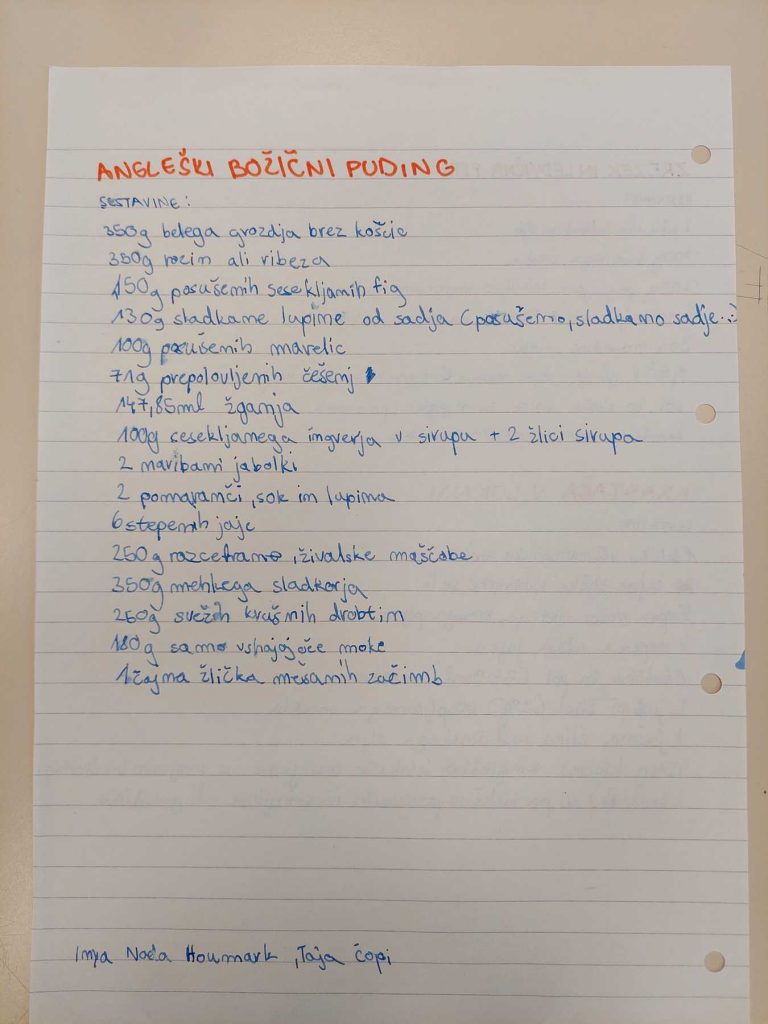 ANGLEŠKI BOŽIČNI PUDING
SESTAVINE:
350g belega grozdja brez košcic
350g rozin ali ribeza
150g posušenih sesekljanih fig
130g sladkane lupine od sadja (posušeno, sladkano sadje..)
100g posušenih marelic
71g prepolovljenih češenj
147,85ml žganja
100g sesekljanega ingverja v sirupu + 2 žlici sirupa
2 naribani jabolki
2 pomaranči, sok in lupina
6 stepenih jajc
250g razcefrane, živalske maščobe
350g mehkega sladkorja
250g svežih krušnih drobtin
180g samo vshajajoče moke
1 čajna žlička mešanih začimb
Noela Houmark, Taja Čopi